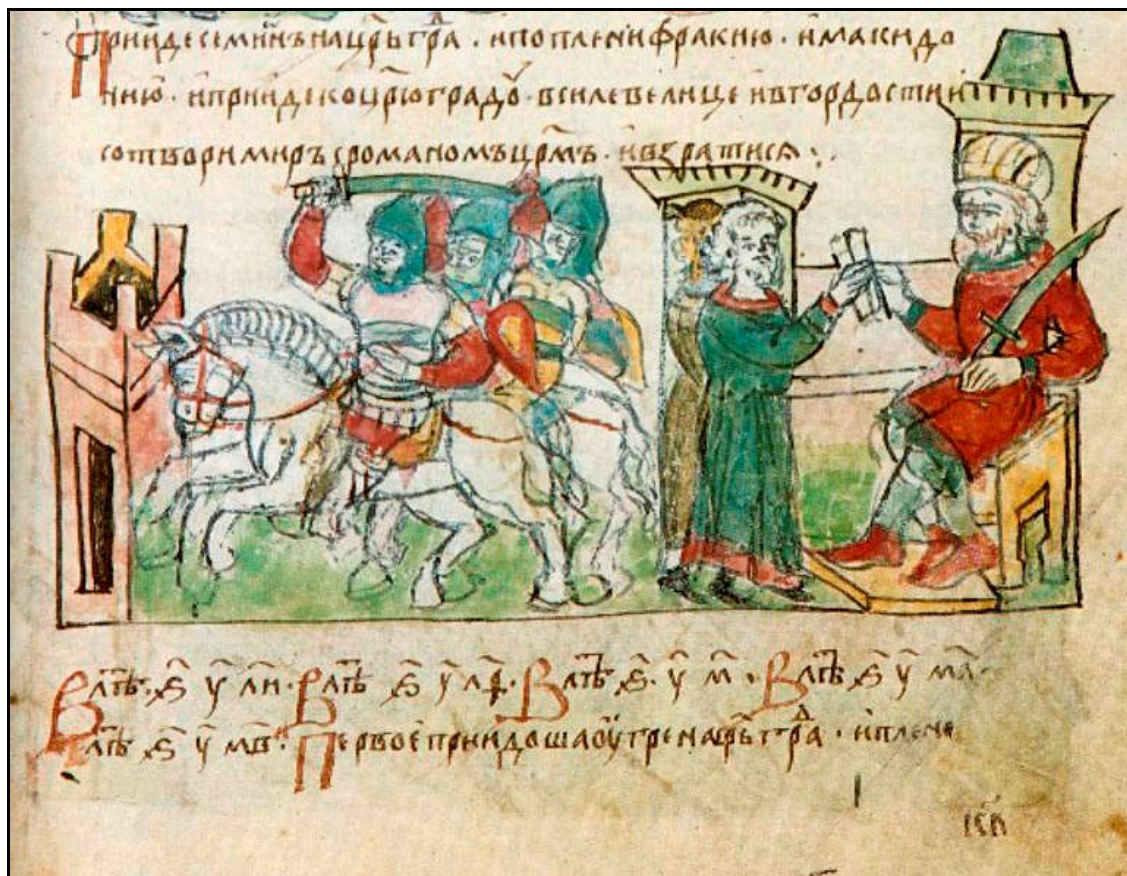 Прииде семиѡнъ на цр҃ьграⷣ . и поплени фракию . и макидо
нию . и прииде ко цр҃юградоу . в силе велице и в гордости и
сотвори миръ с романомъ цр҃мъ . и взратися :.
В лѣⷮ . ҂ѕ҃ у҃ ли . В лѣⷮ ҂ѕ҃ у҃ лѳ҃ . В лѣⷮ ҂ѕ҃ . у҃ м҃ . В лѣⷮ ҂ѕ҃ у҃ ма҃ .
В лѣⷮ ҂ѕ҃ у҃ мв҃ . Первое приидоша оугре на цр҃ьграⷣ . и плене